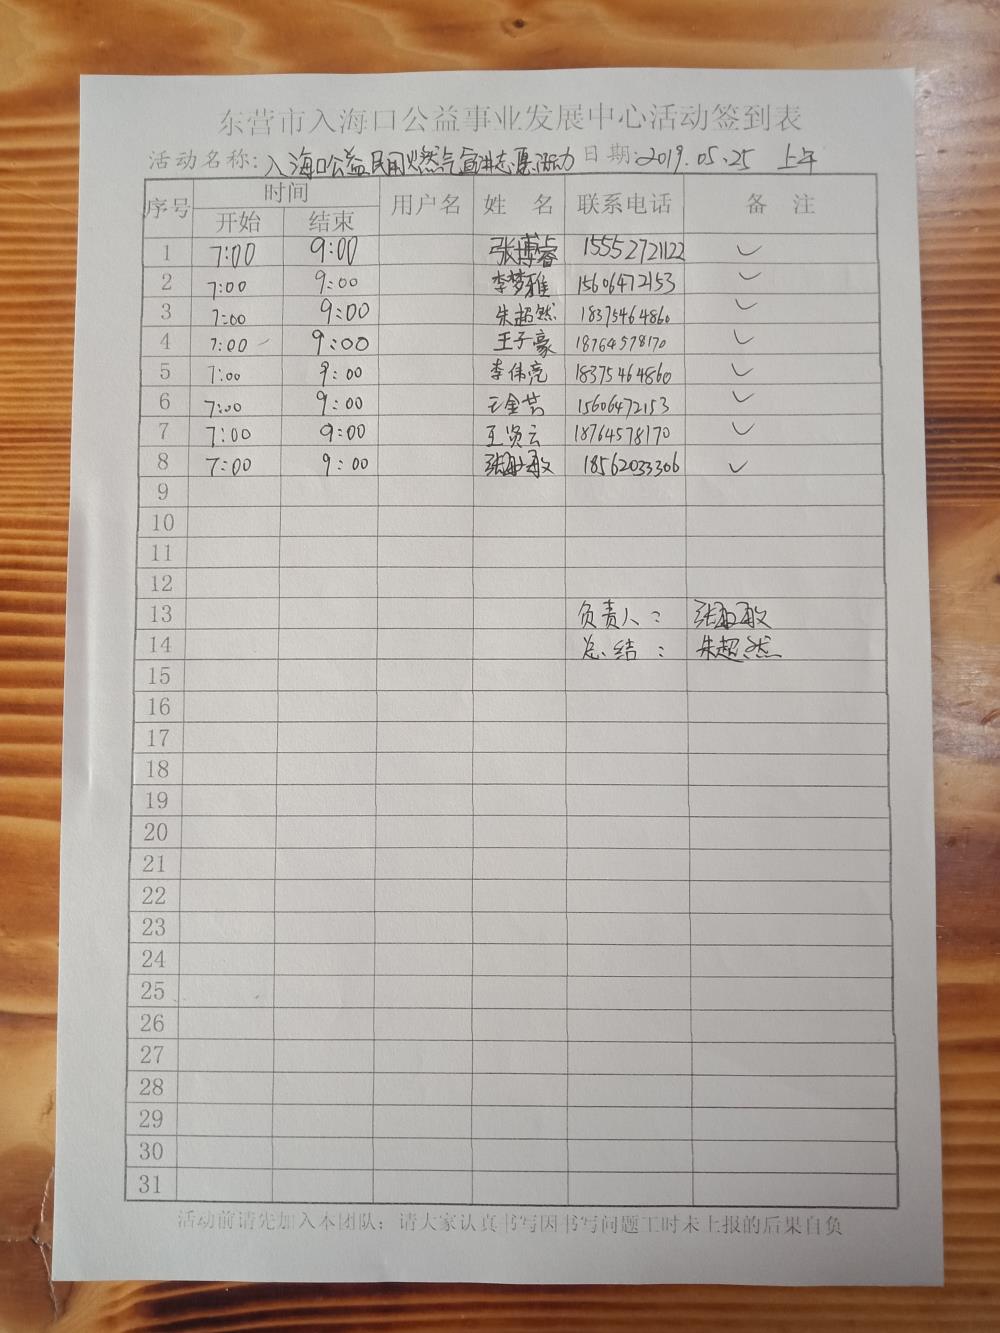 东营市入海口公益事业发展中心活动签到表
活动名称:入海口公益民用燃气宣讲志愿活动 日期:2019.05.25 上午
序号 时间 用户名 姓 名 联系电话 备 注
开始 结束
1 7:00 9:00 张博睿 15552721122 ✓
2 7:00 9:00 李梦雅 15606472153 ✓
3 7:00 9:00 朱超然 18375464860 ✓
4 7:00 9:00 王子豪 18764578170 ✓
5 7:00 9:00 李伟亮 18375464860 ✓
6 7:00 9:00 王金 15606472153 ✓
7 7:00 9:00 王贤云 18764578170 ✓
8 7:00 9:00 张敏 18562033306 ✓
9
10
11
12
13 负责人: 张敏
14 总结: 朱超然
15
16
17
18
19
20
21
22
23
24
25
26
27
28
29
30
31
活动前请先加入本团队;请大家认真书写因书写问题工时未上报的后果自负